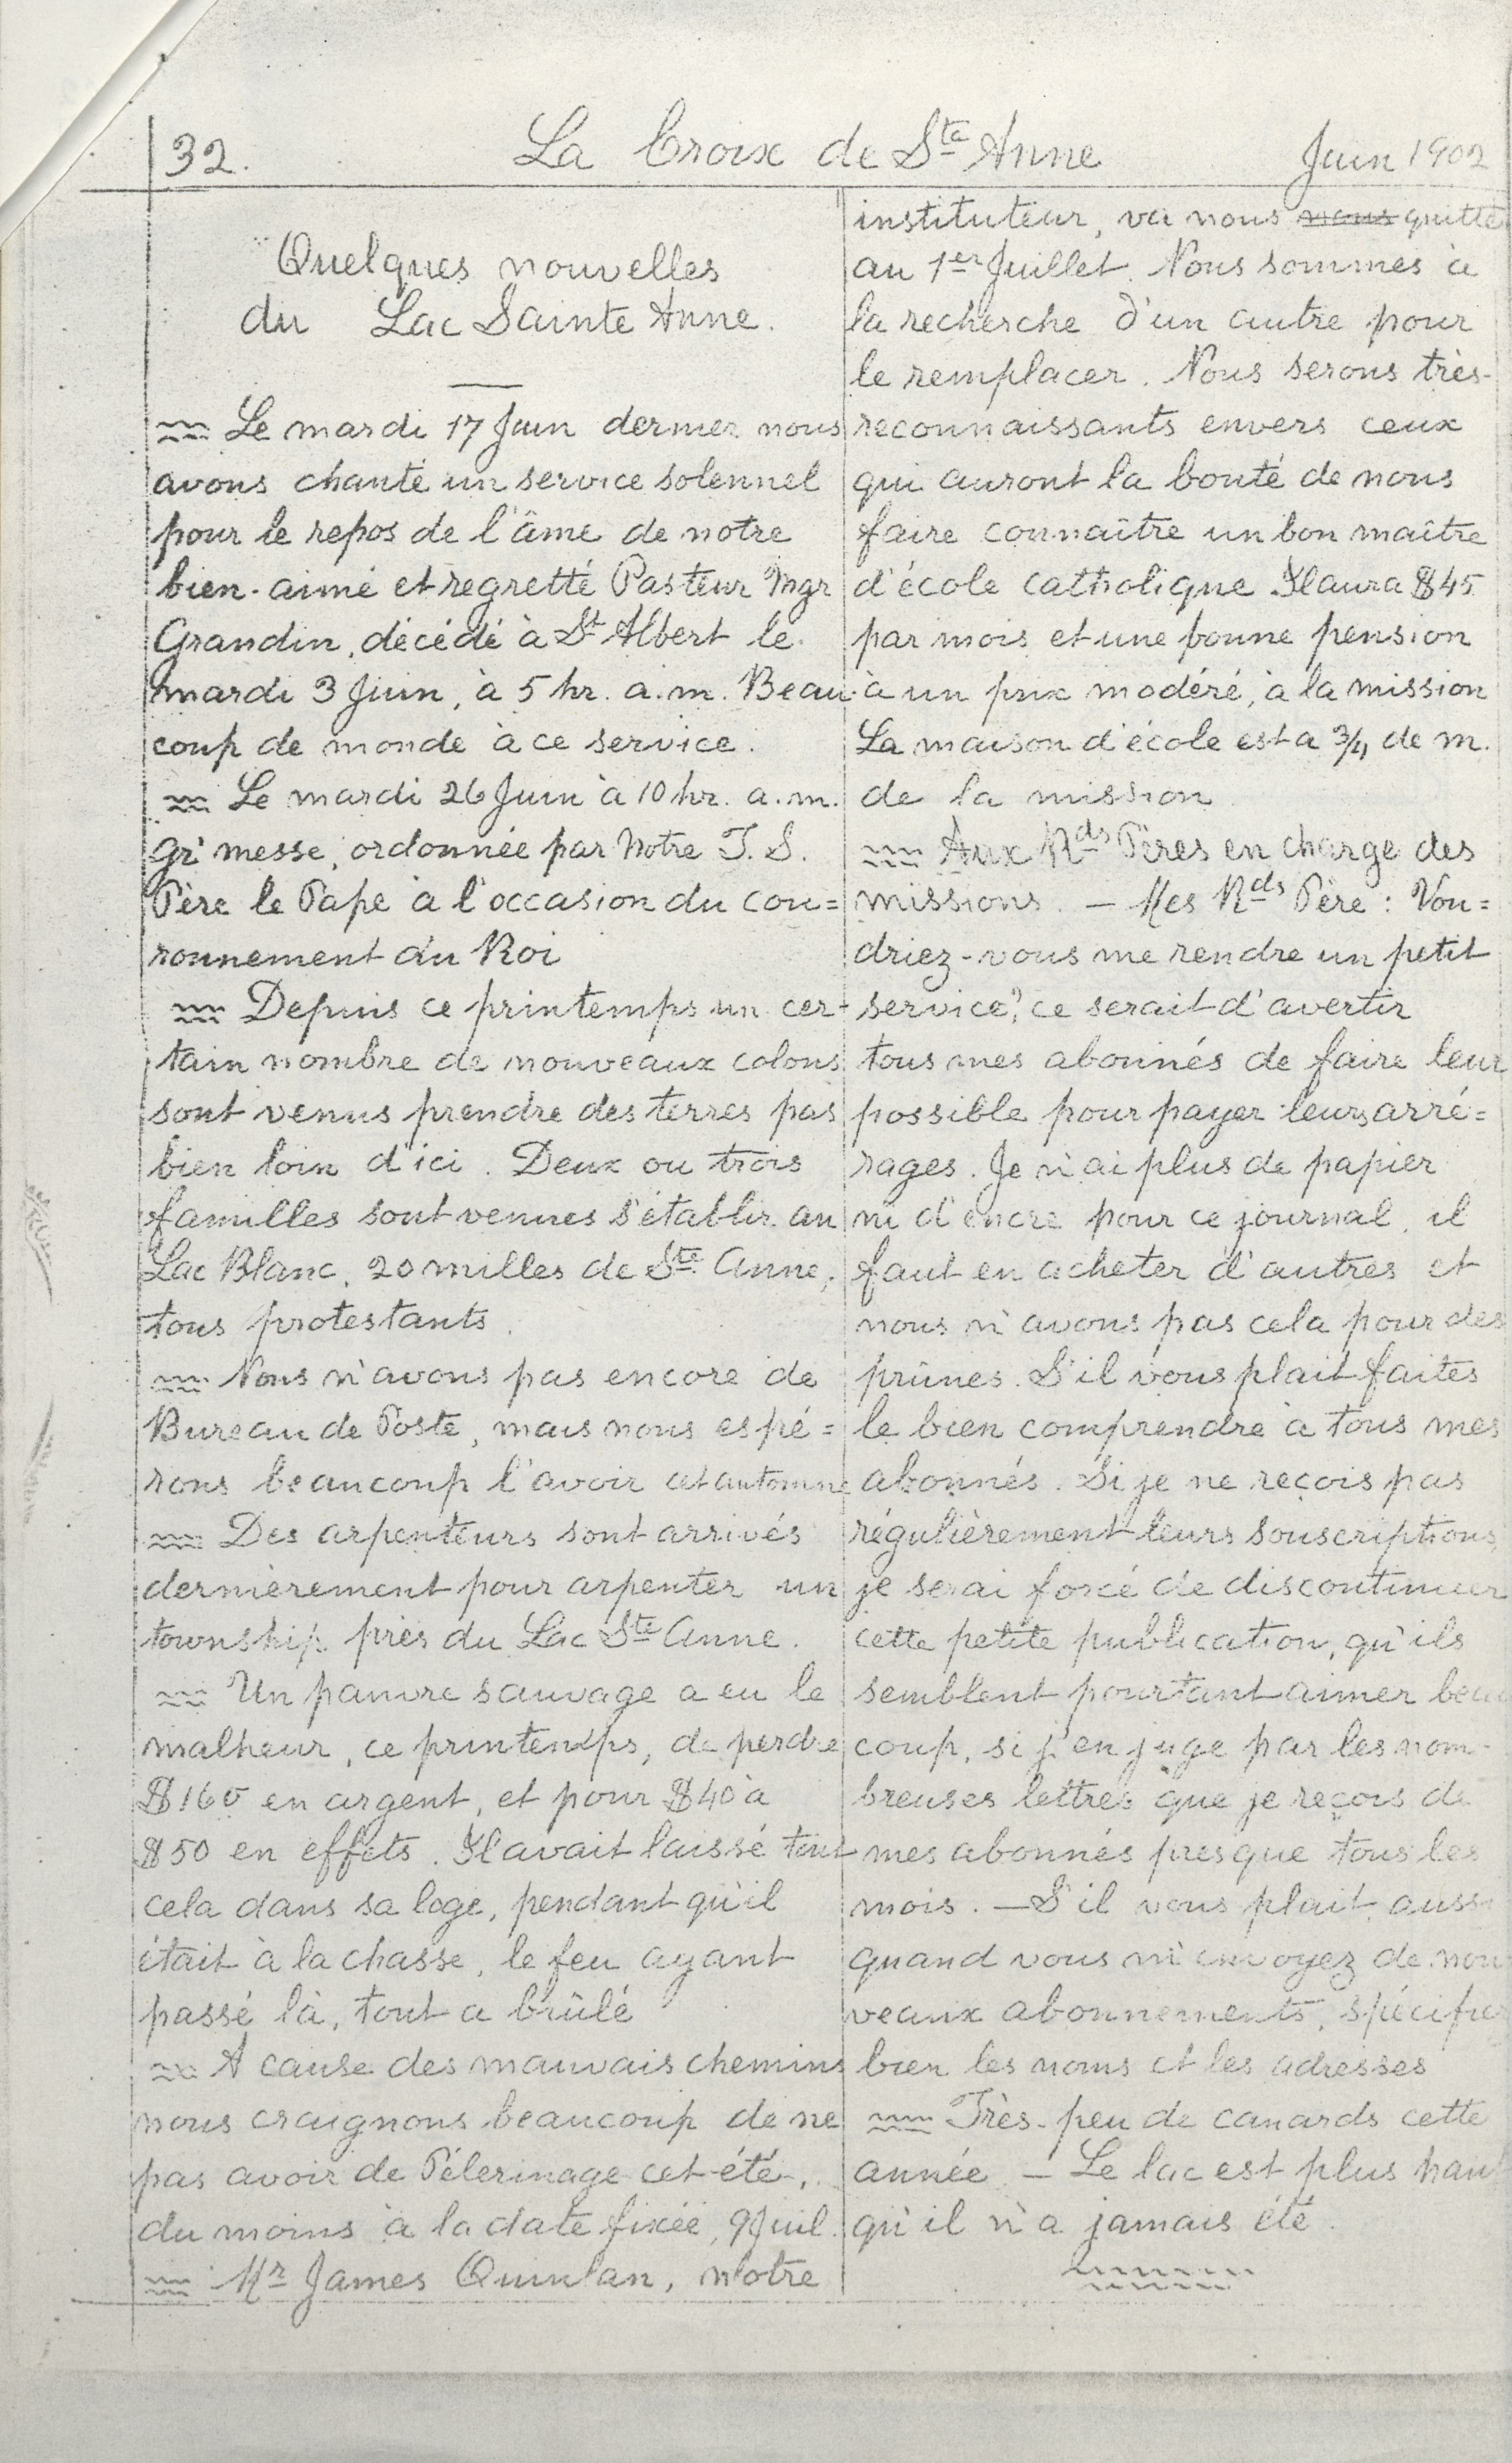 32. La Croix de Ste Anne Juin 1902
Quelques nouvelles
du Lac Sainte Anne.
Le mardi 17 Juin dernier nous
avons chanté un service solennel
pour le repos de l'âme de notre
bien-aimé et regretté Pasteur Mgr
Grandin, décédé à St Albert le
mardi 3 Juin, à 5 hr. a.m. Beau-
coup de monde à ce service.
Le mardi 26 Juin à 10 hr. a.m.
gr' messe, ordonnée par Notre T. S.
Père le Pape à l'occasion du cou=
ronnement du Roi
Depuis ce printemps un cer-
tain nombre de nouveaux colons
sont venus prendre des terres pas
bien loin d'ici. Deux ou trois
familles sont venues s'établir au
Lac Blanc, 20 milles de Ste Anne,
tous protestants.
Nous n'avons pas encore de
Bureau de Poste, mais nous espé=
rons beaucoup l'avoir cet automne
Des arpenteurs sont arrivés
dernièrement pour arpenter un
township près du Lac Ste Anne.
Un pauvre sauvage a eu le
malheur, ce printemps, de perdre
$160 en argent, et pour $40 à
$50 en effets. Il avait laissé tout
cela dans sa loge, pendant qu'il
était à la chasse, le feu ayant
passé là, tout a brûlé
A cause des mauvais chemins
nous craignons beaucoup de ne
pas avoir de Pélerinage cet été,
du moins à la date fixée, 9 Juil.
Mr James Quinlan, notre
instituteur, va nous nous quitte
au 1er Juillet. Nous sommes à
la recherche d'un autre pour
le remplacer. Nous serons très-
reconnaissants envers ceux
qui auront la bonté de nous
faire connaître un bon maître
d'école catholique Il aura $45
par mois et une bonne pension
à un prix modéré, à la mission
La maison d'école est a 3/4 de m.
de la mission
Aux Rds Pères en charge des
missions. — Mes Rds Père: Vou=
driez-vous me rendre un petit
service? ce serait d'avertir
tous mes abonnés de faire leur
possible pour payer leurs arré=
rages. Je n'ai plus de papier
ni d'encre pour ce journal, il
faut en acheter d'autres et
nous n'avons pas cela pour des
prûnes. S'il vous plait faites
le bien comprendre à tous mes
abonnés. Si je ne reçois pas
régulièrement leurs souscriptions,
je serai forcé de discontinuer
cette petite publication, qu'ils
semblent pourtant aimer beau
coup, si j'en juge par les nom-
breuses lettres que je reçois de
mes abonnés presque tous les
mois. — S'il vous plait aussi
quand vous m'envoyez de nou
veaux abonnements, spécifiez
bien les noms et les adresses
Très-peu de canards cette
année — Le lac est plus haut
qu'il n'a jamais été.